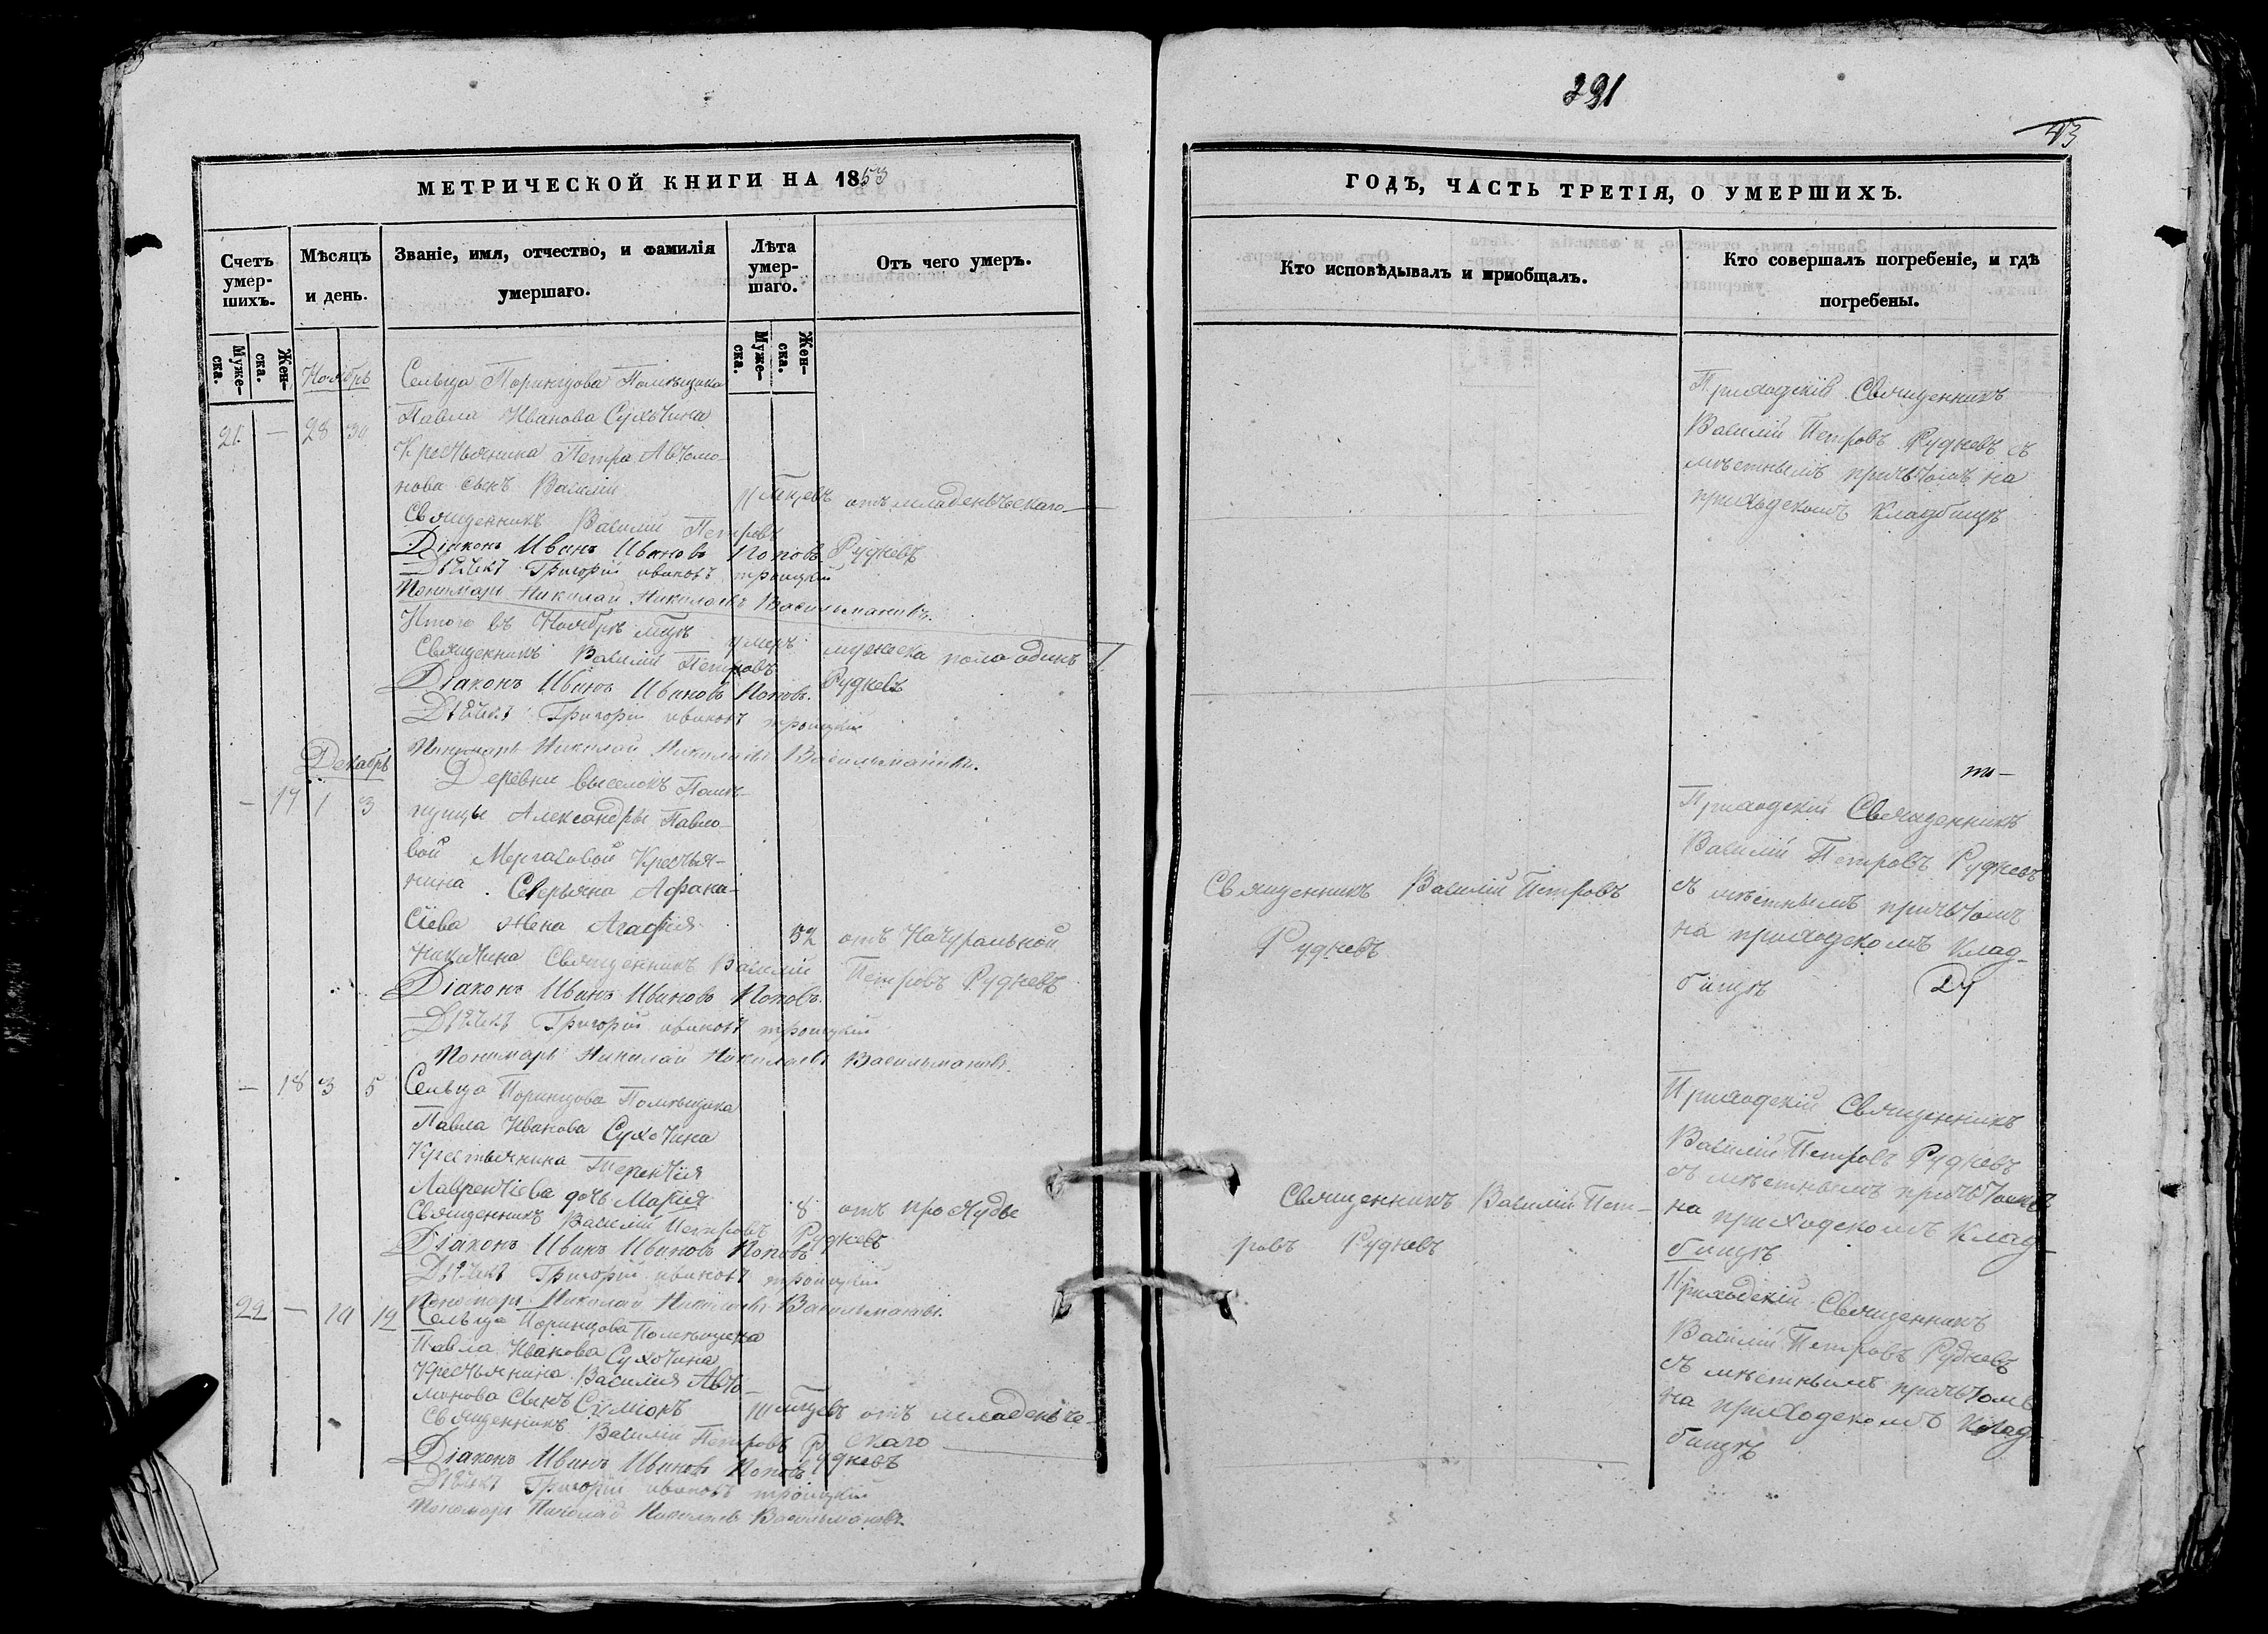 МЕТРИЧЕСКОЙ КНИГИ НА 1853
Счетъ умерших.
Мѣсяцъ и день.
Званіе, имя, отчество, и фамилія умершаго.
Лѣта умершаго.
Отъ чего умеръ.
Мужеска.
Женска.
Мужеска.
Женска.
Ноябрь
21. — 28 30
Сельца Поринцова Помѣщика
Павла Иванова Сухотина
Крестьянина Петра Авто-
нова сынъ Василій
11 мцевъ отъ младенческаго
Священникъ Василій Петровъ Рудневъ
Діаконъ Иванъ Ивановъ Поповъ
Дьячекъ Григорій ивановъ троицкій
Пономарь Николай Николаевъ
Итого въ Ноябрѣ мцѣ умеръ мужеска пола одинъ
Священникъ Василій Петровъ Рудневъ
Діаконъ Иванъ Ивановъ Поповъ.
Дьячекъ Григорій ивановъ троицкій
Пономарь Николай Николаевъ
Декабрь
— 17 1 3
Деревни выселокъ Помѣ-
щицы Александры Павло-
вой Мергасовой Крестья-
нина Северьяна Афана-
сіева жена Агафія
52 отъ Натуральной
Никитина Священникъ Василій Петровъ Рудневъ
Діаконъ Иванъ Ивановъ Поповъ.
Дьячекъ Григорій ивановъ троицкій
Пономарь Николай Николаевъ
— 18 3 5
Сельца Поринцова Помѣщика
Павла Иванова Сухотина
Крестьянина Терентія
Лаврентіева дочь Марія
8 отъ простуды
Священникъ Василій Петровъ Рудневъ
Діаконъ Иванъ Ивановъ Поповъ
Дьячекъ Григорій ивановъ троицкій
Пономарь Николай Николаевъ
22 — 10 12
Сельца Поринцова Помѣщика
Павла Иванова Сухотина
Крестьянина Василія Авто-
монова сынъ Сѵміонъ
мцевъ отъ младенче-
скаго
Священникъ Василій Петровъ Рудневъ
Діаконъ Иванъ Ивановъ Поповъ
Дьячекъ Григорій ивановъ троицкій
Пономарь Николай Николаевъ
291
43
ГОДЪ, ЧАСТЬ ТРЕТІЯ, О УМЕРШИХЪ.
Кто исповѣдывалъ и пріобщалъ.
Кто совершалъ погребеніе, и гдѣ погребены.
Приходскій Священникъ
Василій Петровъ Рудневъ съ
мѣстнымъ причьтомъ на
приходскомъ Кладбищѣ
Священникъ Василій Петровъ
Рудневъ
Приходскій Священникъ
Василій Петровъ Рудневъ
съ мѣстнымъ причьтомъ
на приходскомъ Клад-
бищѣ
Священникъ Василій Пет-
ровъ Рудневъ
Приходскій Священникъ
Василій Петровъ Рудневъ
съ мѣстнымъ причьтомъ
на приходскомъ Клад-
бищѣ
Приходскій Священникъ
Василій Петровъ Рудневъ
съ мѣстнымъ причьтомъ
на приходскомъ Клад-
бищѣ